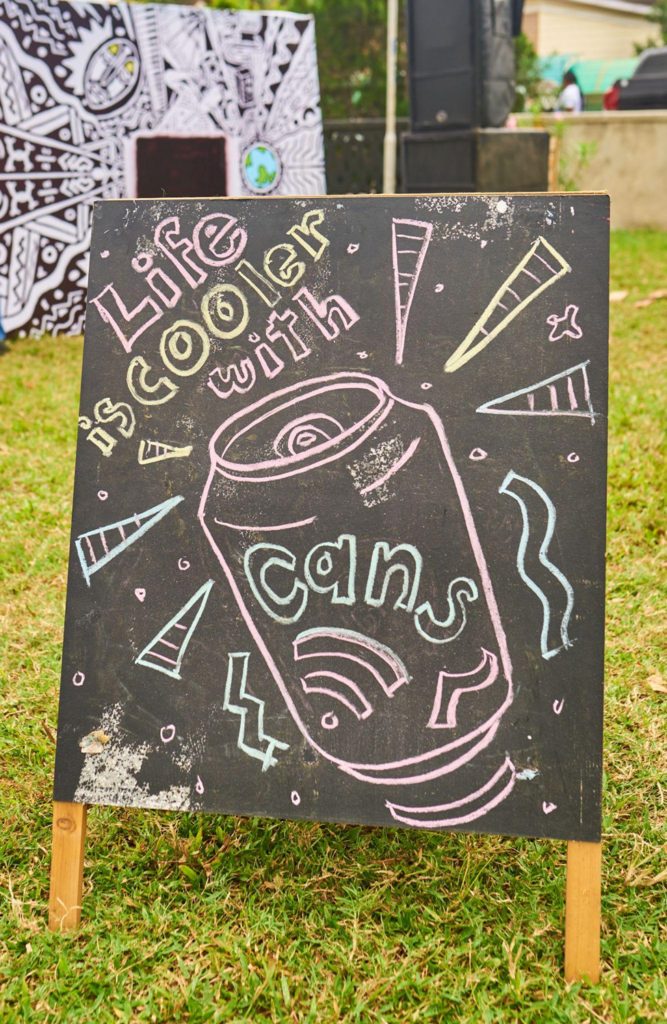 Life
is COOler
with
Cans